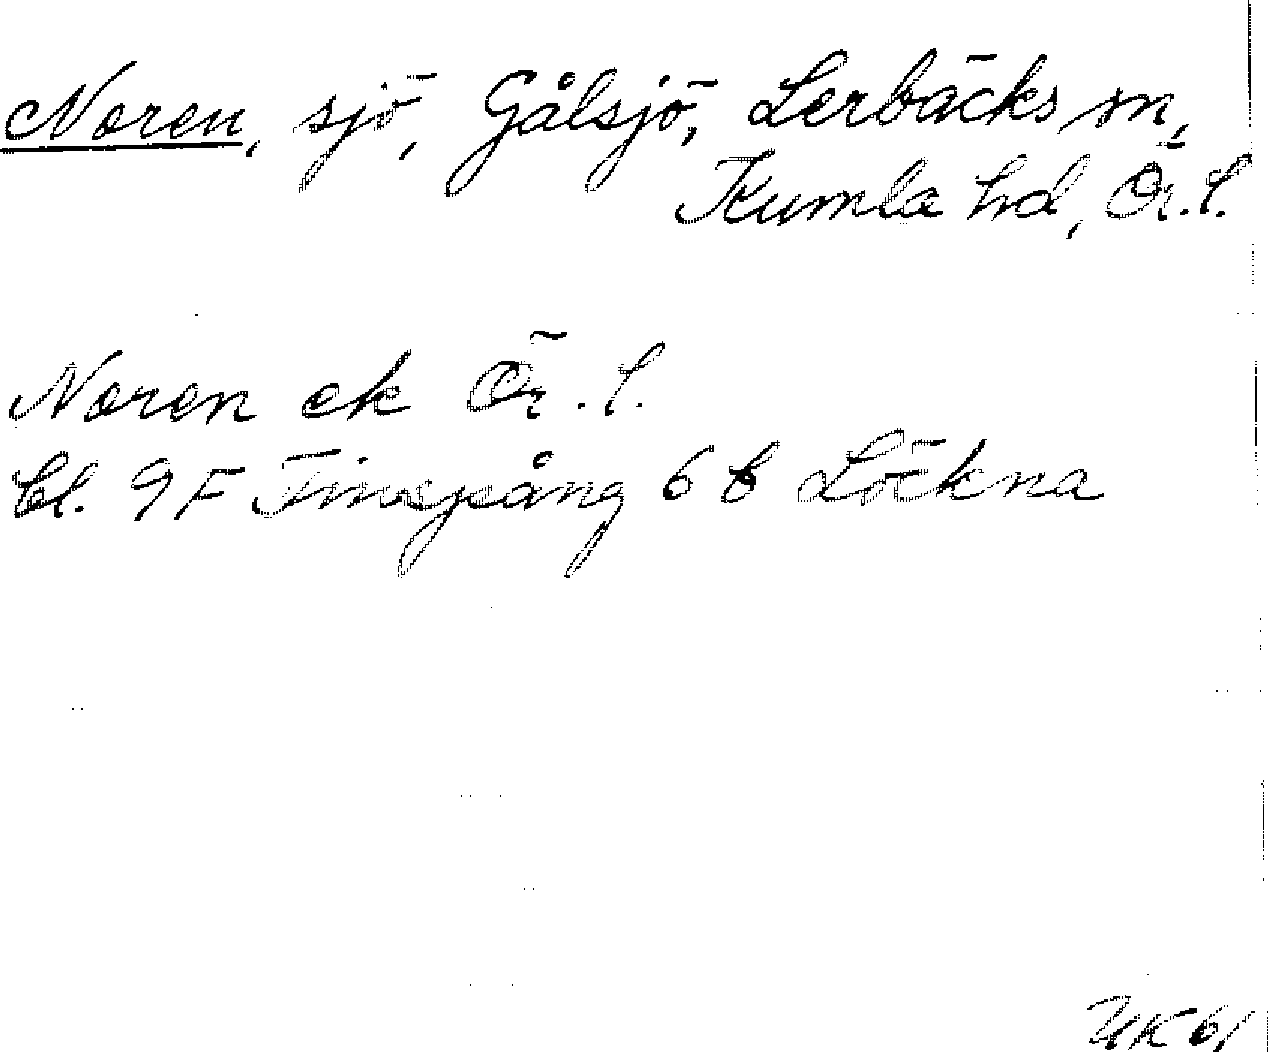 Noren, sjö, Gålsjö, Lerbäcks sn,
Kumla hd, Ör. l.
Noren ek Ör. l.
bl. 9F Finspång 6 b Löckna
UK 61